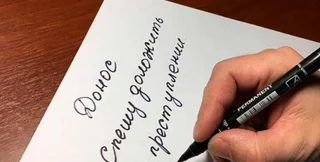 Донос
Спешу доложить
преступлении
PERMANENT